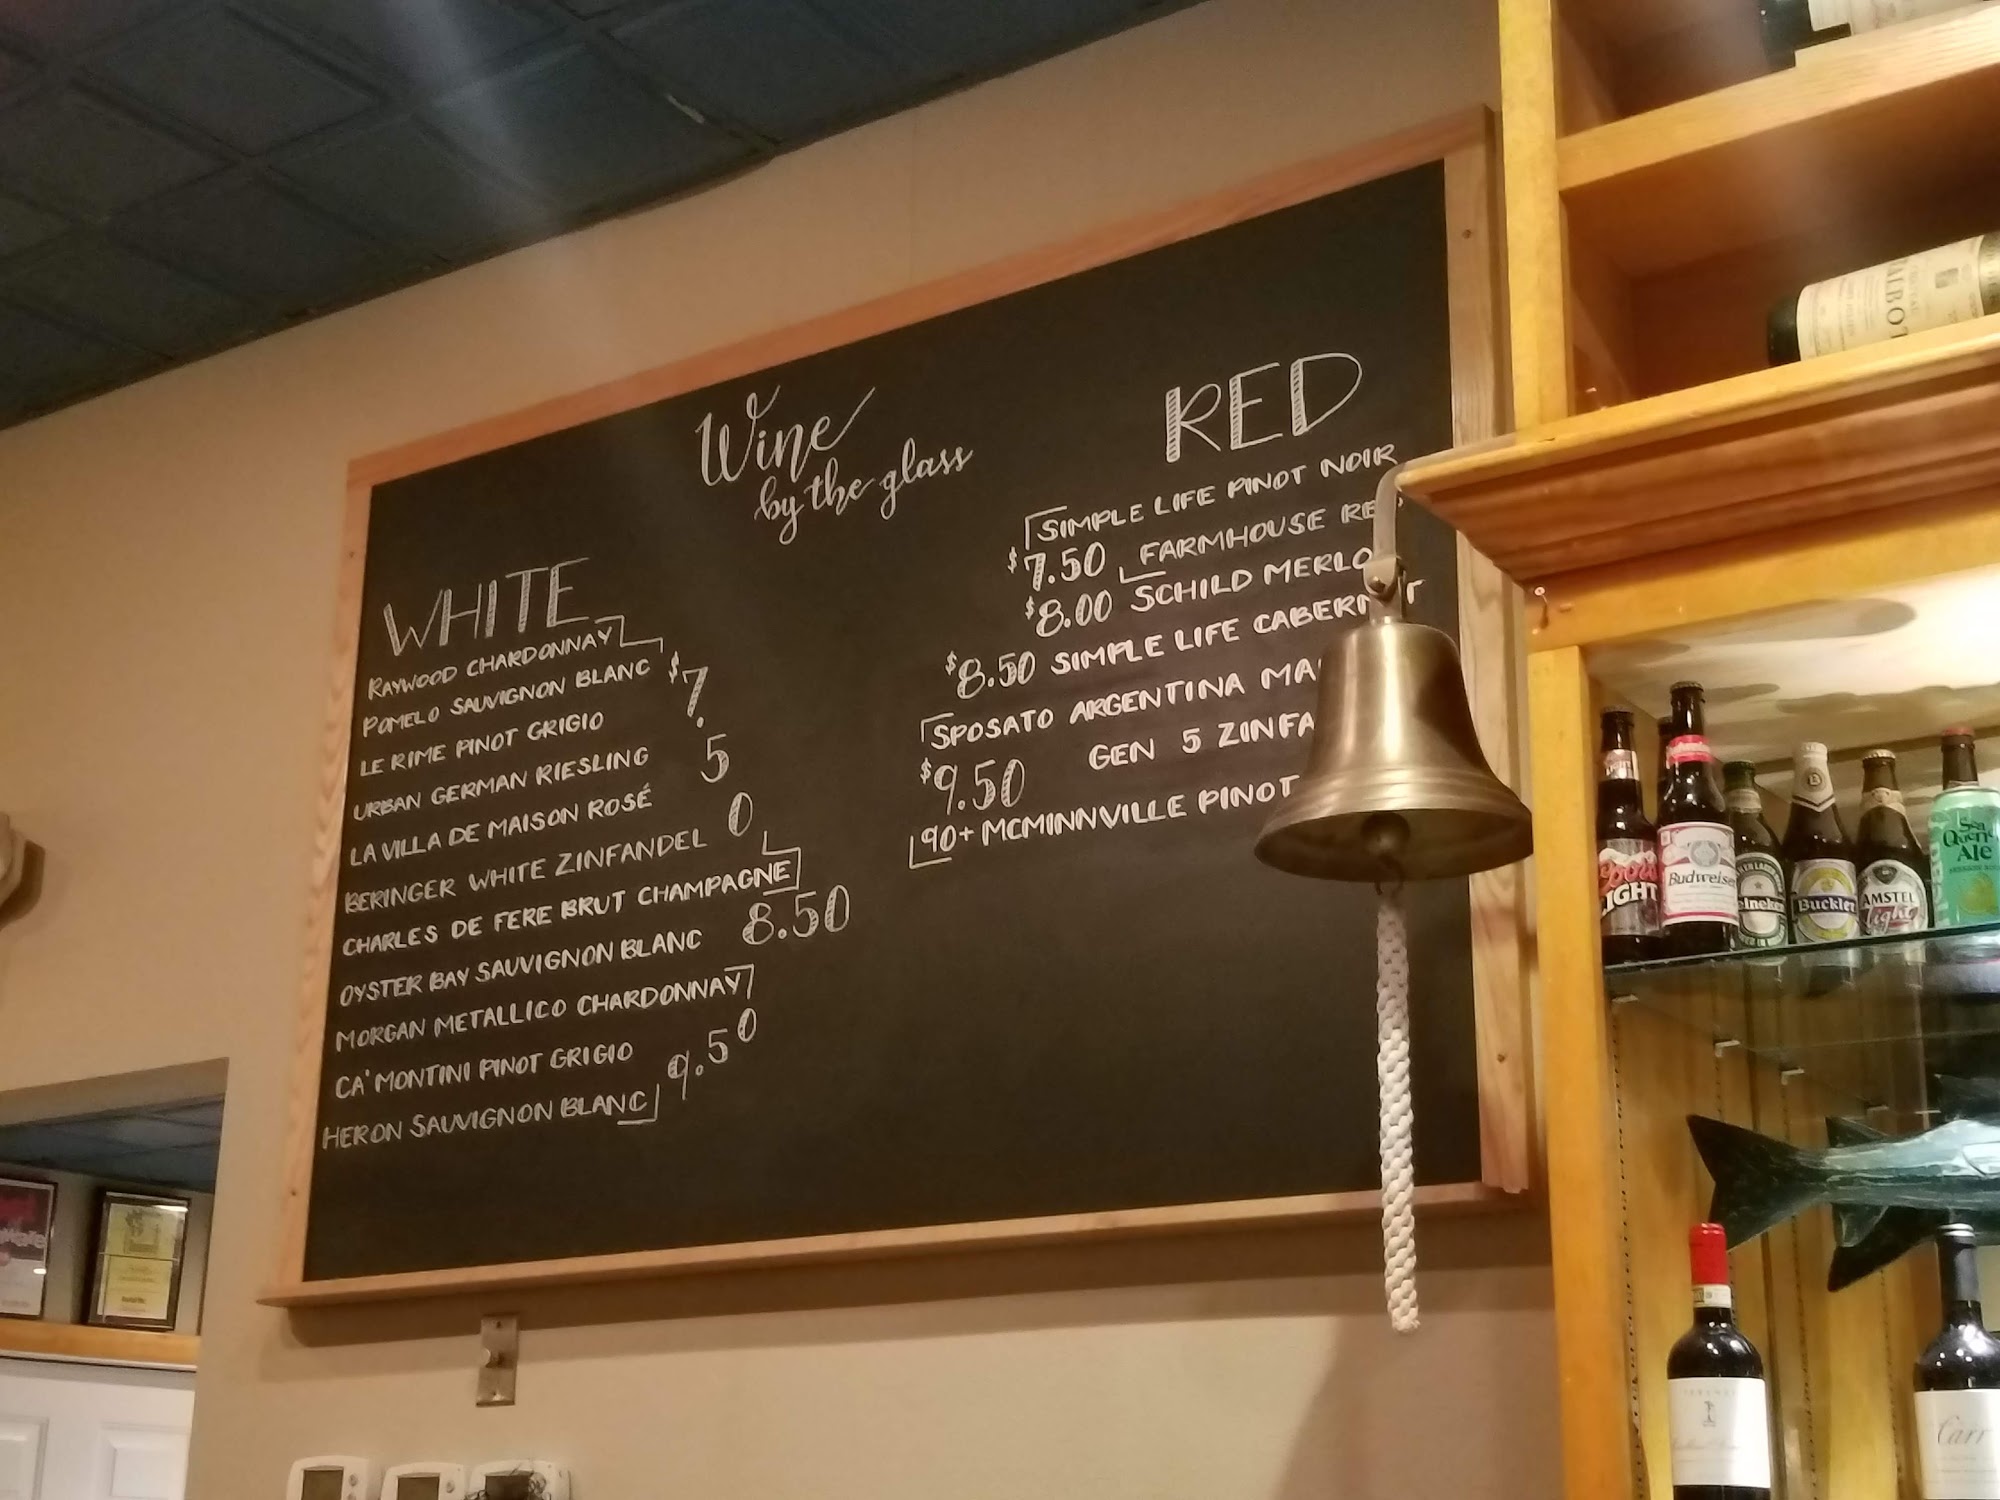 Wine
by the glass
WHITE
RAYWOOD CHARDONNAY
POMELO SAUVIGNON BLANC
LE RIME PINOT GRIGIO
URBAN GERMAN RIESLING
LA VILLA DE MAISON ROSÉ
BERINGER WHITE ZINFANDEL
$7.50
CHARLES DE FERE BRUT CHAMPAGNE
OYSTER BAY SAUVIGNON BLANC 8.50
MORGAN METALLICO CHARDONNAY
CA' MONTINI PINOT GRIGIO 9.50
HERON SAUVIGNON BLANC
RED
SIMPLE LIFE PINOT NOIR
$7.50 FARMHOUSE
$8.00 SCHILD
$8.50 SIMPLE LIFE
SPOSATO ARGENTINA
$9.50 GEN 5
90+ MCMINNVILLE PINOT
TALBOT
Coors
LIGHT
Budweiser
Heineken
Buckler
AMSTEL
light
Sea
Quench
Ale
Carr